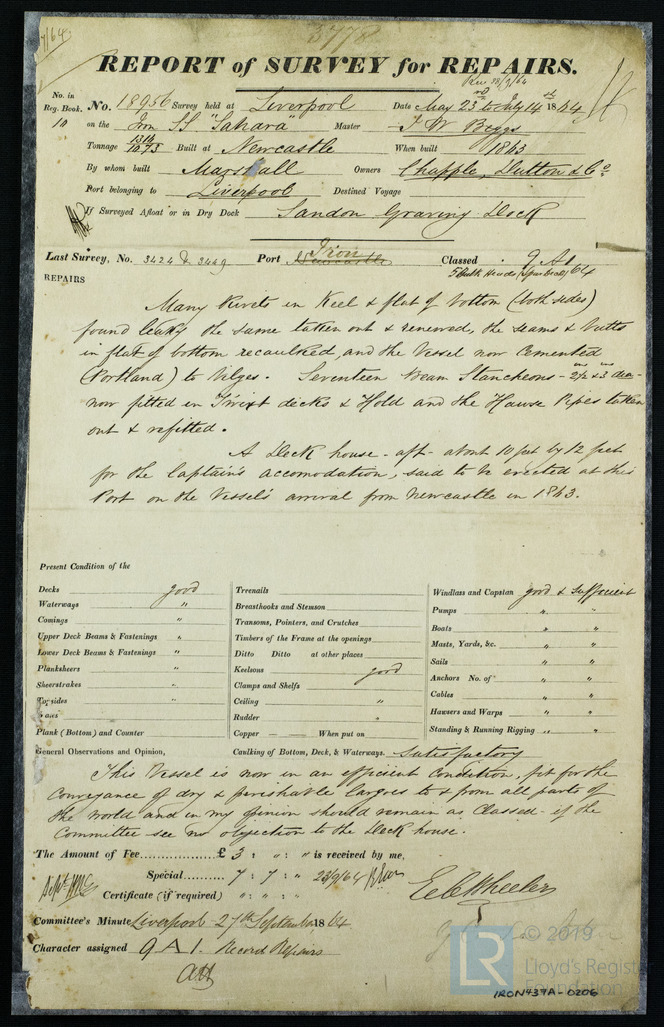 7/64
3778
REPORT of SURVEY for REPAIRS.
Rec 28/9/64
No. in Reg. Book. No. 18956 Survey held at Liverpool Date May 23rd to July 14th 1864
10 on the Iron SS "Sahara" Master T W Beggs
Tonnage 1314 1073 Built at Newcastle When built 1863
By whom built Marshall Owners Chapple, Dutton & Co
Port belonging to Liverpool Destined Voyage
If Surveyed Afloat or in Dry Dock Sandon Graving Dock
Last Survey, No. 3424 & 3449 Port Newcastle Iron Classed 9 A1
5 Bulk Heads 64
REPAIRS
Many Rivets in Keel & flat of bottom (both sides)
found leaky the same taken out & renewed, the seams & butts
in flat of bottom recaulked, and the Vessel now Cemented
(Portland) to bilges. Seventeen Beam Stancheons - 2½ ins & 3 ins dia -
now fitted in Twixt decks & Hold and the Hawse Pipes taken
out & refitted.
A Deck house - aft - about 10 feet by 12 feet
for the Captain's accomodation, said to be erected at this
Port on the Vessel's arrival from Newcastle in 1863.
Present Condition of the
Decks good
Waterways "
Comings "
Upper Deck Beams & Fastenings "
Lower Deck Beams & Fastenings "
Planksheers "
Sheerstrakes "
Topsides "
Wales "
Plank (Bottom) and Counter
Treenails
Breasthooks and Stemson
Transoms, Pointers, and Crutches
Timbers of the Frame at the openings
Ditto Ditto at other places
Keelsons good
Clamps and Shelfs
Ceiling "
Rudder "
Copper — — When put on
Windlass and Capstan good & sufficient
Pumps " "
Boats " "
Masts, Yards, &c. " "
Sails " "
Anchors No. of " "
Cables " "
Hawsers and Warps " "
Standing & Running Rigging " "
General Observations and Opinion, Caulking of Bottom, Deck, & Waterways. Satisfactory
This Vessel is now in an efficient condition, fit for the
Conveyance of dry & perishable Cargoes to & from all parts of
the world and in my opinion should remain as Classed - if the
Committee see no objection to the Deck house.
The Amount of Fee £ 3 : " : " is received by me,
Special 7 : 7 : " 23/9/64
Certificate (if required) " : " : "
E C Wheeler
Committee's Minute Liverpool 27th September 1864
Character assigned 9 A 1. Record Repairs
LR © 2019
Lloyd's Register
Foundation
IRON437A-0206